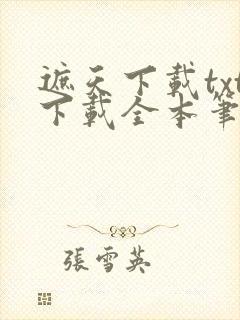 遮天下載txt
下載全本筆
張雪英